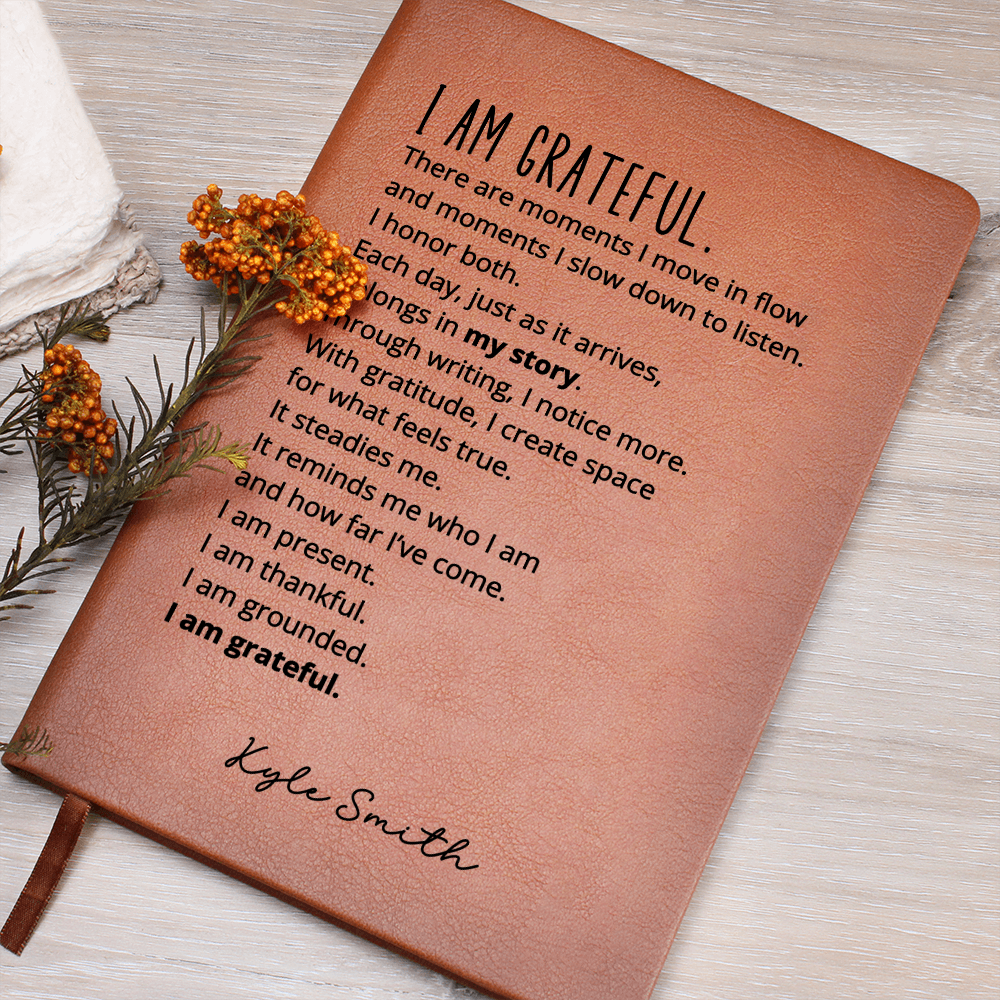 I AM GRATEFUL.
There are moments I move in flow
and moments I slow down to listen.
I honor both.
Each day, just as it arrives,
longs in my story.
hrough writing, I notice more.
With gratitude, I create space
for what feels true.
It steadies me.
It reminds me who I am
and how far I've come.
I am present.
I am thankful.
I am grounded.
I am grateful.
Kyle Smith